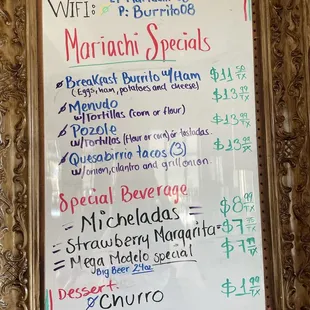 WIFI:
P: Burrito08
Mariachi Specials
Breakfast Burrito w/Ham $11.50 TX
(Eggs, ham, potatoes and cheese)
Menudo $13.99 TX
w/Tortillas (corn or flour)
Pozole $13.99 TX
w/Tortillas (Flour or corn) or tostadas.
Quesabirria tacos (3) $13.99 TX
w/onion, cilantro and grill onion
Special Beverage
- Micheladas = $8.99 TX
- Strawberry Margarita = $7.99 TX
= Mega Modelo special $7.99 TX
Big Beer 24oz
Dessert.
Churro $1.99 TX